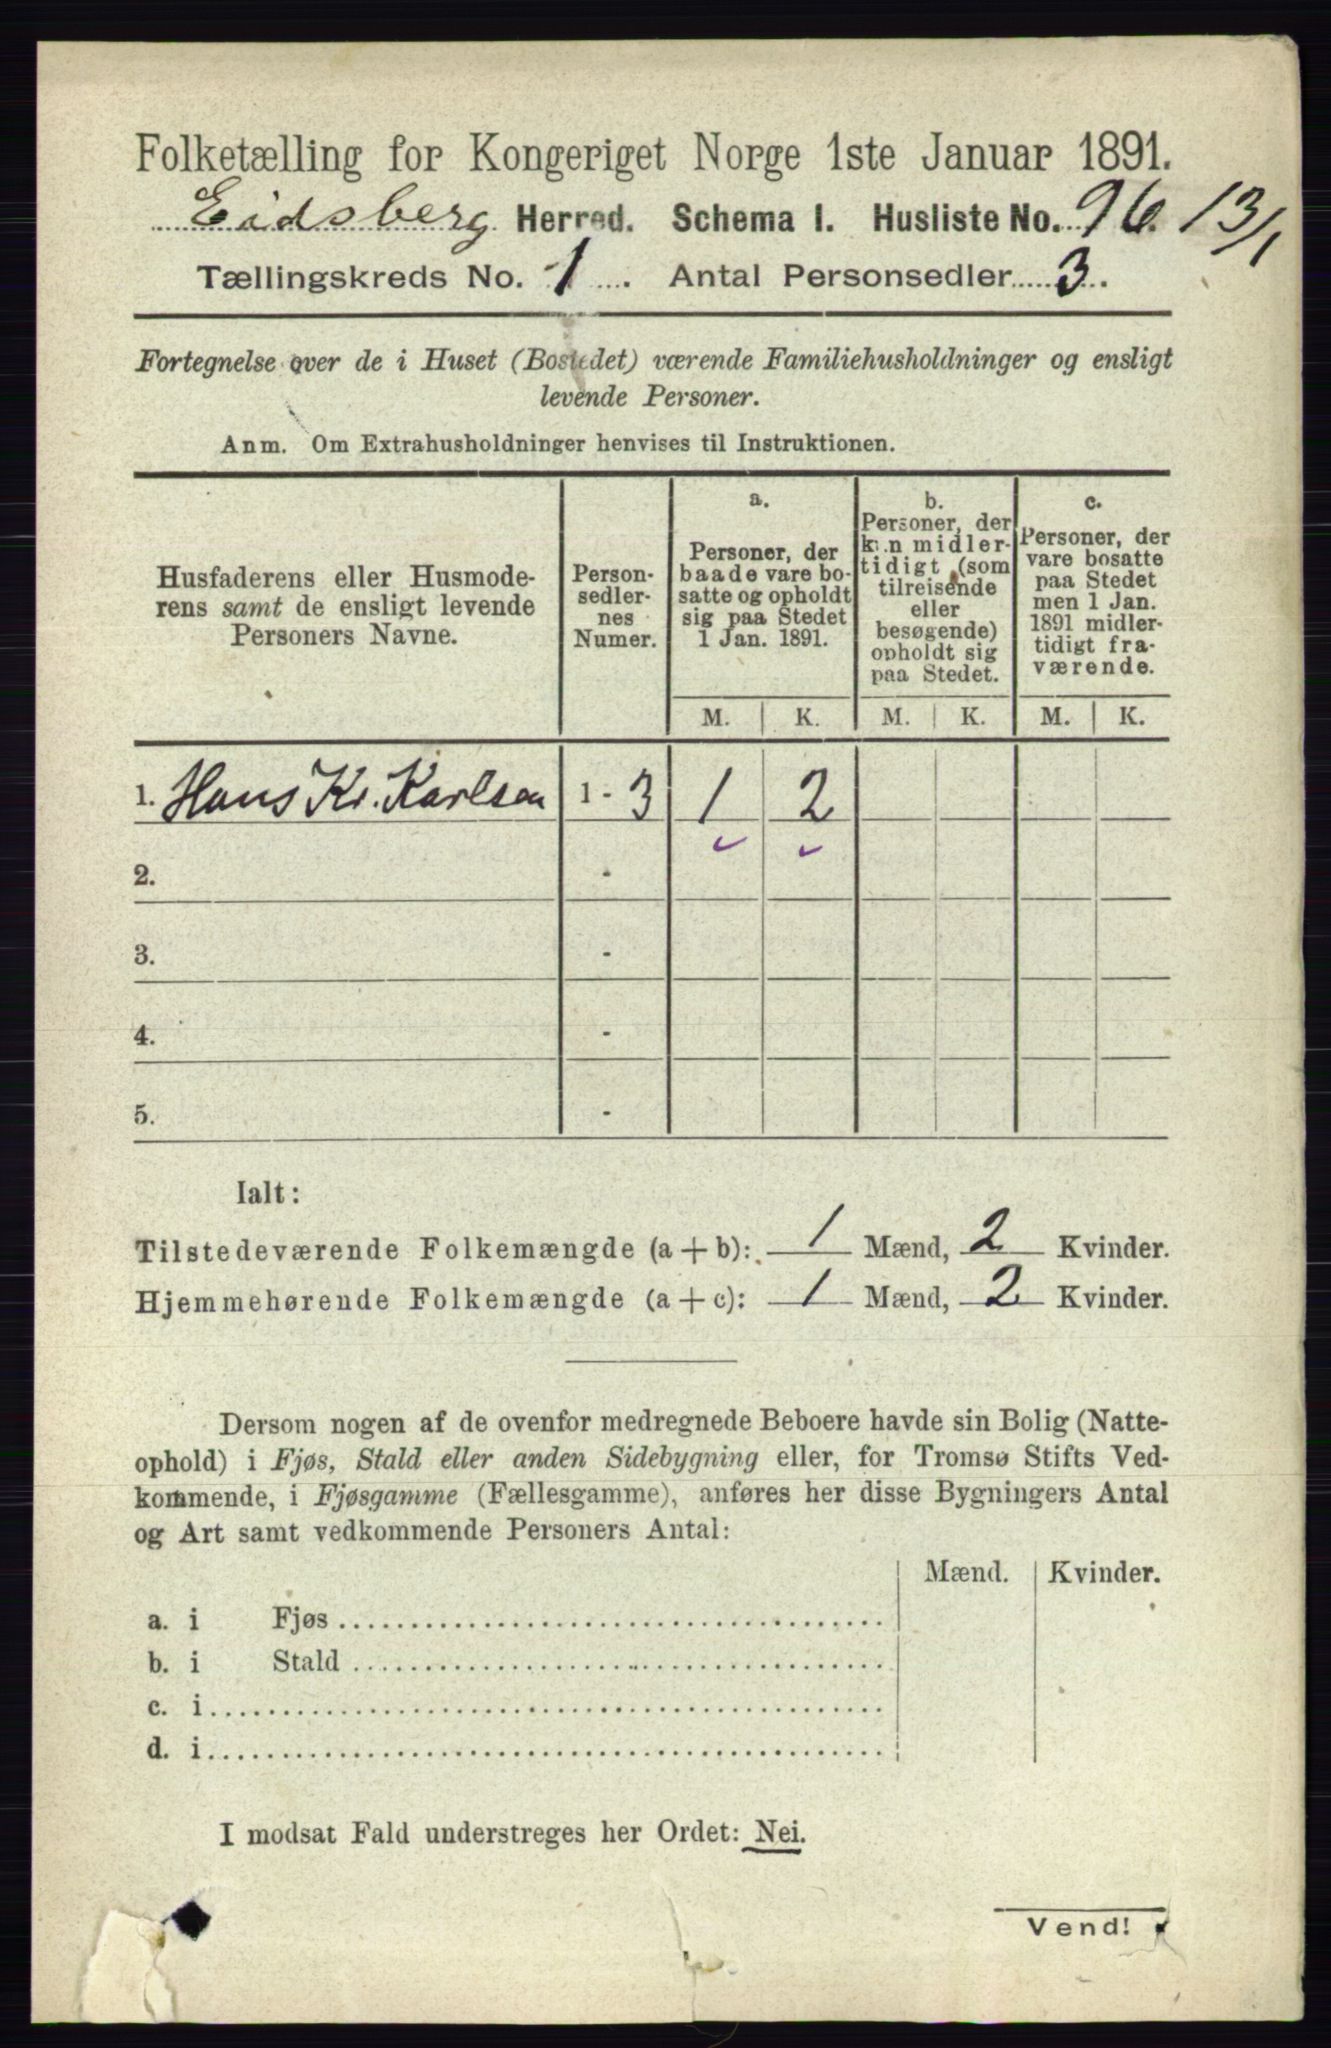 Folketælling for Kongeriget Norge 1ste Januar 1891.
Eidsberg Herred. Schema I. Husliste No. 96. 13/1
Tællingskreds No. 1. Antal Personsedler 3.
Fortegnelse over de i Huset (Bostedet) værende Familiehusholdninger og ensligt
levende Personer.
Anm. Om Extrahusholdninger henvises til Instruktionen.
Husfaderens eller Husmode-
rens samt de ensligt levende
Personers Navne.
Person-
sedler-
nes
Numer.
a.
Personer, der
baade vare bo-
satte og opholdt
sig paa Stedet
1 Jan. 1891.
b.
Personer, der
kun midler-
tidigt (som
tilreisende
eller
besøgende)
opholdt sig
paa Stedet.
c.
Personer, der
vare bosatte
paa Stedet
men 1 Jan.
1891 midler-
tidigt fra-
værende.
M. K. M. K. M. K.
1. Hans Kr. Karlsen 1 - 3 1 2
2. -
3. -
4. -
5. -
Ialt:
Tilstedeværende Folkemængde (a + b): 1 Mænd, 2 Kvinder.
Hjemmehørende Folkemængde (a + c): 1 Mænd, 2 Kvinder.
Dersom nogen af de ovenfor medregnede Beboere havde sin Bolig (Natte-
ophold) i Fjøs, Stald eller anden Sidebygning eller, for Tromsø Stifts Ved-
kommende, i Fjøsgamme (Fællesgamme), anføres her disse Bygningers Antal
og Art samt vedkommende Personers Antal:
Mænd. Kvinder.
a. i Fjøs
b. i Stald
c. i
d. i
I modsat Fald understreges her Ordet: Nei.
Vend!